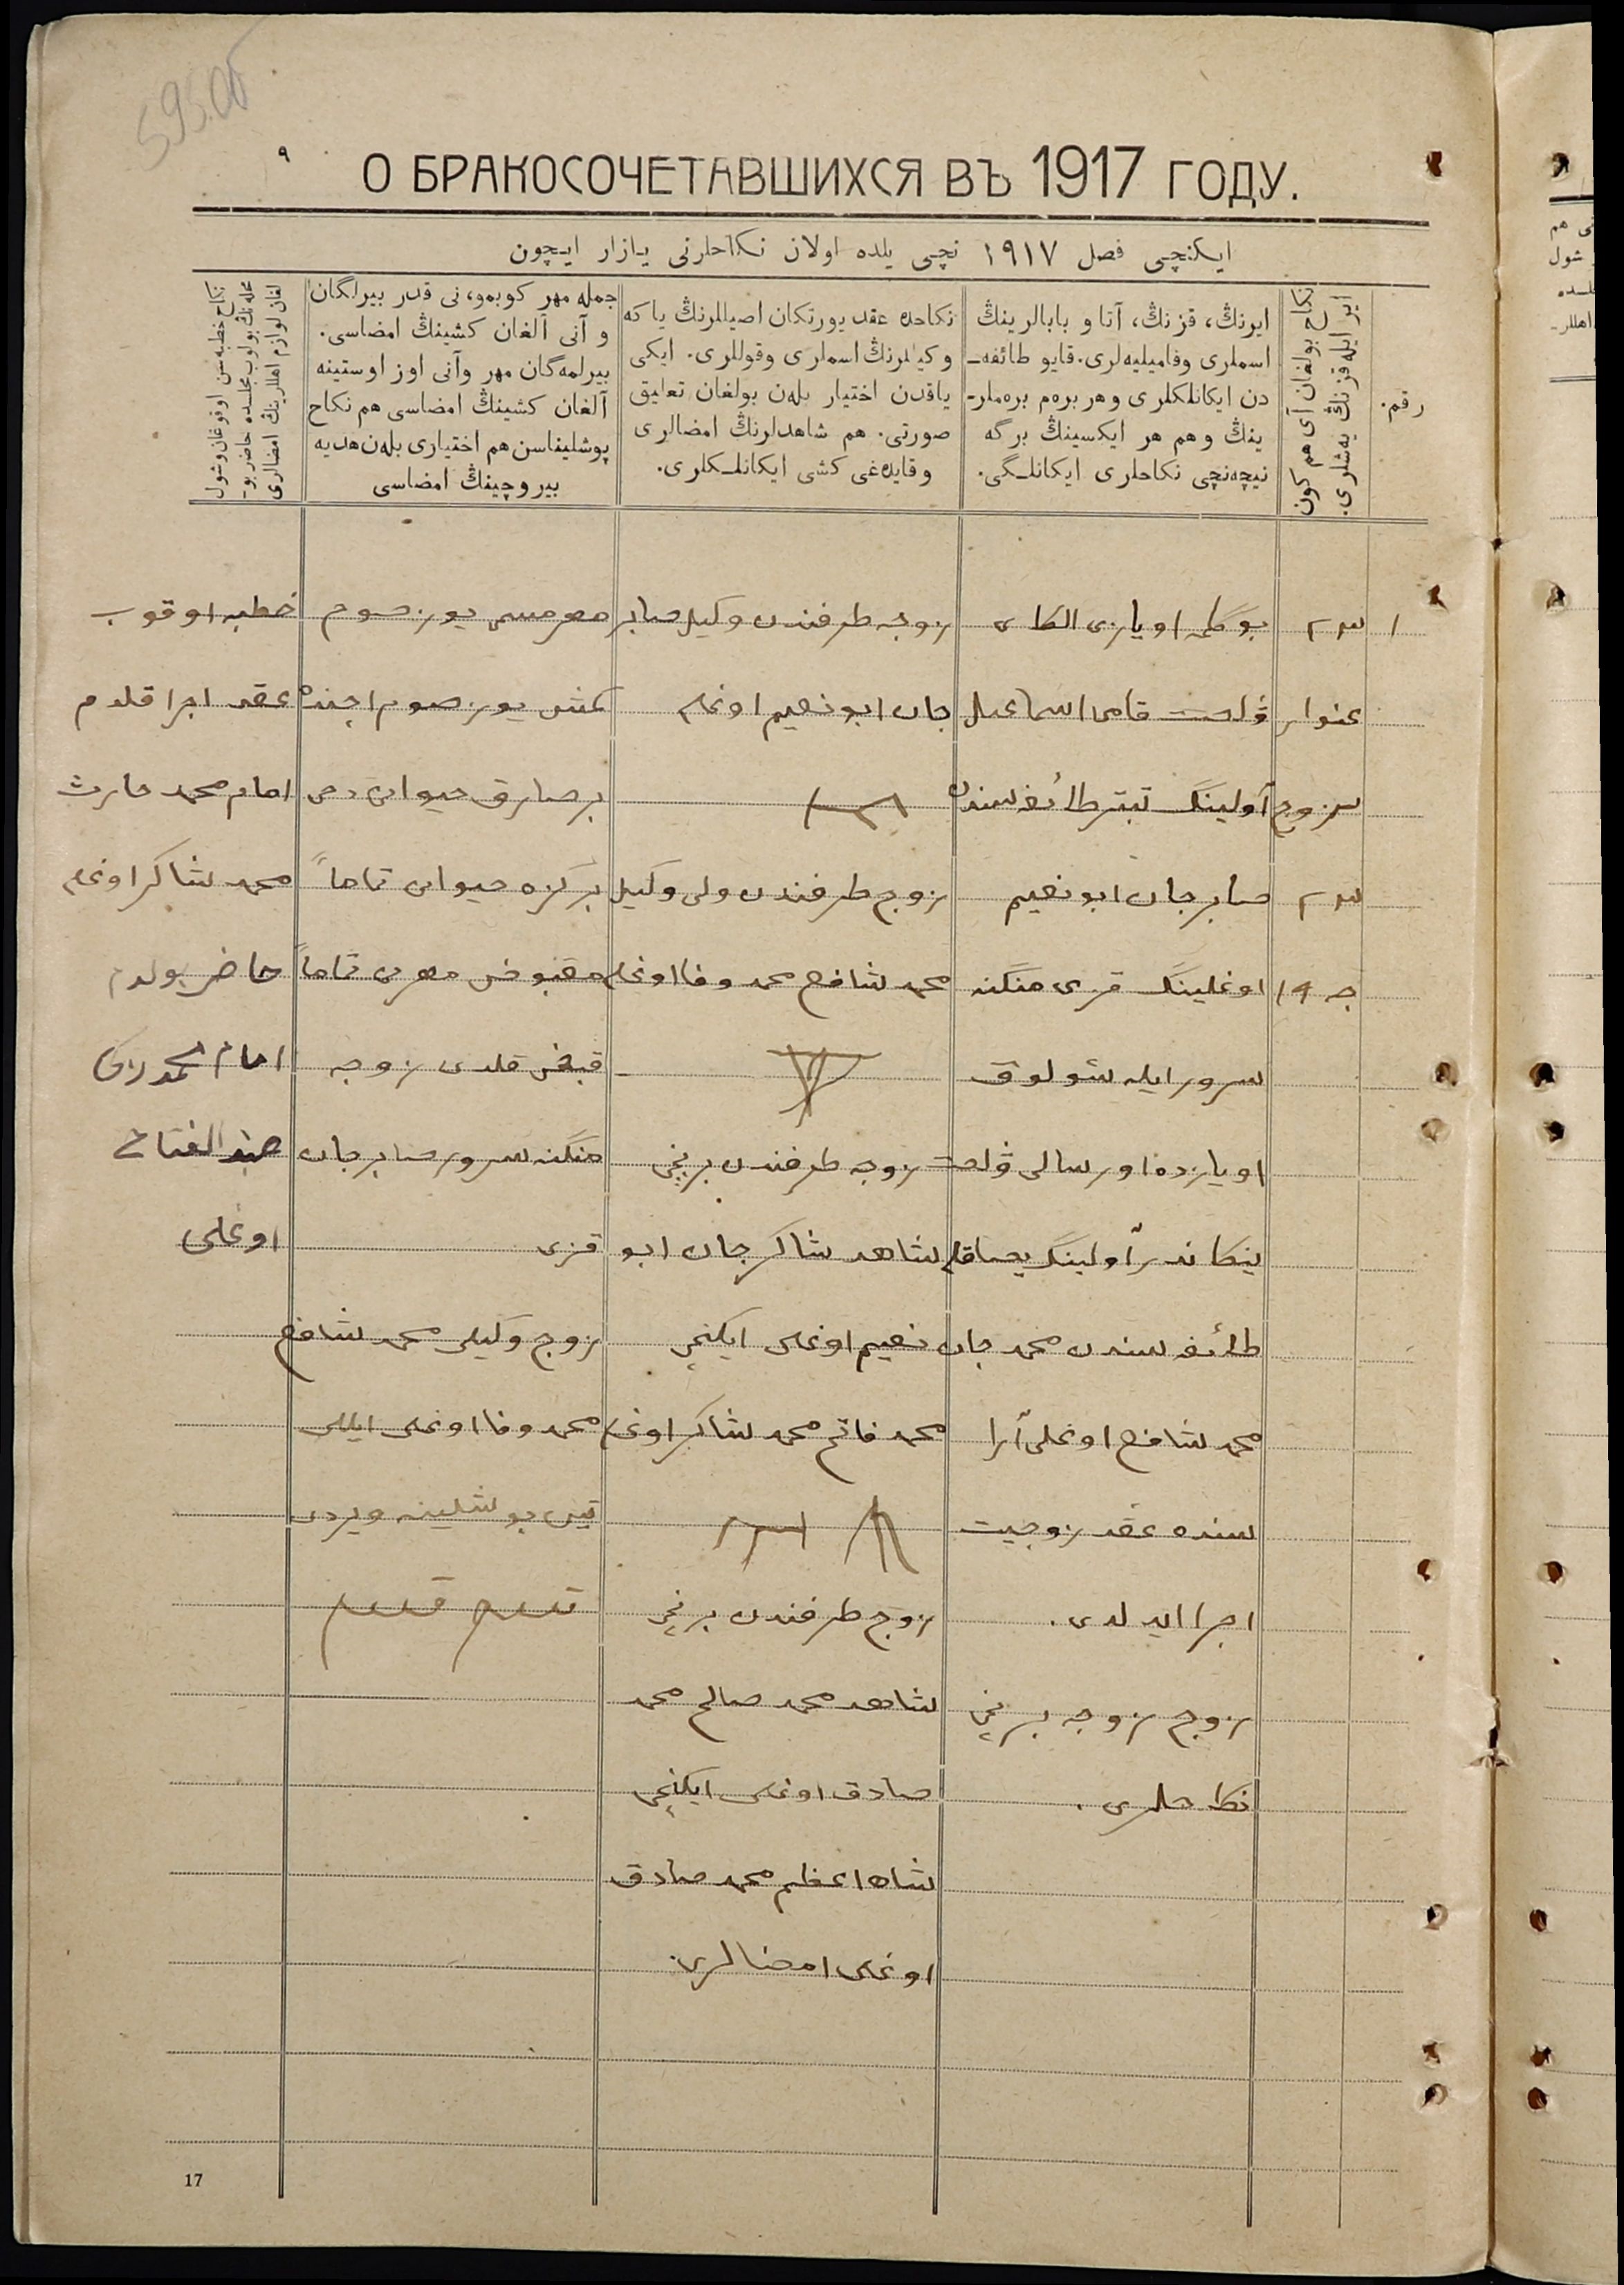 595.об
٩
О БРАКОСОЧЕТАВШИХСЯ ВЪ 1917 ГОДУ.
ایکنچی فصل ١٩١٧ نچی یلده اولان نکاحلرنی یازار ایچون
رقم.
نکاح بولغان آی هم کون
ایر ایله قزنڭ یه‌شلری.
ایرنڭ، قزنڭ، آتا و بابالرینڭ
اسملری وفامیلیه‌لری. قایو طائفه‌ـ
دن ایکانلکلری و هر برهم بره‌ملرـ
ینڭ و هم هر ایکسینڭ برگه
نیچه‌نچی نکاحلری ایکانلـگی.
نکاحده عقد یورتکان اصیللرنڭ یا که
وکیللرنڭ اسملری وقوللری. ایکی
یاقدن اختیار بله‌ن بولغان تعلیق
صورتی. هم شاهدلرنڭ امضالری
وقایده‌غی کشی ایکانلـکلری.
جمله مهر کوبمو، نی قدر بیرلگان
و آنی آلغان کشینڭ امضاسی.
بیرلمه‌گان مهر وآنی اوز اوستینه
آلغان کشینڭ امضاسی هم نکاح
پوشلیناسن هم اختیاری بله‌ن هدیه
بیروچینڭ امضاسی
نکاح خطبه‌سن اوقوغان وشول
محله‌نڭ بولوب مجلسده حاضر بوـ
لغان لوازم اهللرینڭ امضالری
١
عنوار
زوج
جه ١٩
بوگلمه اویازی الکای
ڤلصت قامی اسماعیل
آولینگ تبتر طائفه‌سندن
صابرجان ابونعیم
اوغلینگ قزی منگنه
سرور ایله شولوق
اویازده اورسالی ڤلصت
آولینگ
طائفه‌سندن محمد جان
محمد شافع اوغلی آرا
سنده عقد زوجیت
اجرا ایدلدی.
زوج زوجه برنچی
نکاحلری.
زوجه طرفندن وکیل صابر
جان ابونعیم اوغلی
زوج طرفندن ولی وکیل
محمد شافع محمد وفا اوغلی
زوجه طرفندن برنچی
شاهد شاکرجان ابو
نعیم اوغلی ایکنچی
محمد فاتح محمد شاکر اوغلی
زوج طرفندن برنچی
شاهد محمد صالح محمد
صادق اوغلی ایکنچی
شاه اعظم محمد صادق
اوغلی امضالری.
مهر مسمی یوز صوم
یوز صوم اچنده
بر صارق حیوان دخی
بر کزه حیوان تماماً
مقبوض مهرن تماماً
قبض قلدی زوجه
منگنه سرور صابرجان
قزی
زوج وکیلی محمد شافع
محمد وفا اوغلی ایللی
تین بوشلینه ویردی
خطبه اوقوب
عقد اجرا قلدم
امام محمد حارث
محمد شاکر اوغلی
حاضر بولدم
امام
عبد الفتاح
اوغلی
17